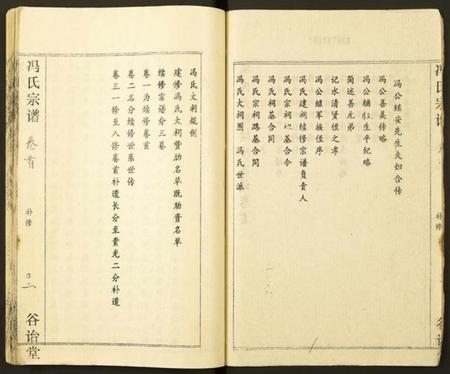 冯公继安先生夫妇合传
冯公善美传略
冯公辅生平纪略
简述善元弟
记水清贤侄之孝
冯公继军族侄序
冯氏建祠续修宗谱负责人
冯氏宗祠基合令
冯氏祠基合同
冯氏宗祠路基合同
冯氏大祠图 冯氏世派
冯氏宗谱
补修
谷诒堂
冯氏大祠规例
建修冯氏大祠赞助名单既助资名单
续修宗谱分三卷
卷一为续修卷首
卷二名分续修世系世传
卷三一修至八修卷首补遗长分至贵光二分补遗
冯氏宗谱
卷首
补修
谷诒堂